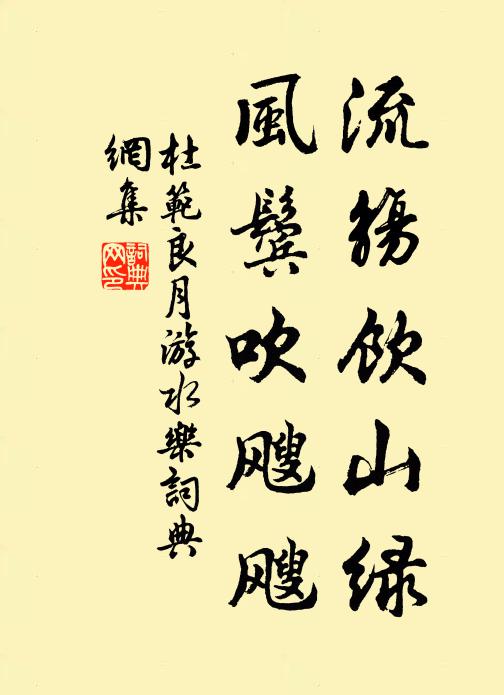 流觞饮山绿
風鬓吹飕飕
杜範良月游水樂詞典
網集
詞典网印